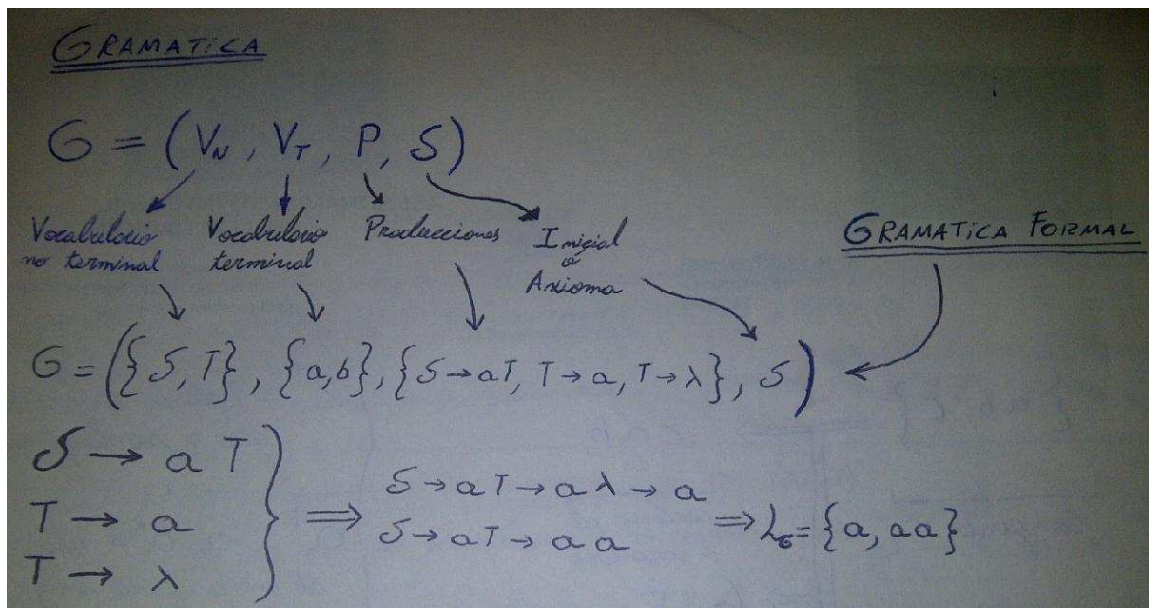 GRAMATICA
G = (V_N, V_T, P, S)
Vocabulario no terminal
Vocabulario terminal
Producciones
Inicial o Axioma
GRAMATICA FORMAL
G = ({S, T}, {a, b}, {S → aT, T → a, T → λ}, S)
S → a T
T → a
T → λ
⇒
S → aT → aλ → a
S → aT → aa
⇒ L_G = {a, aa}